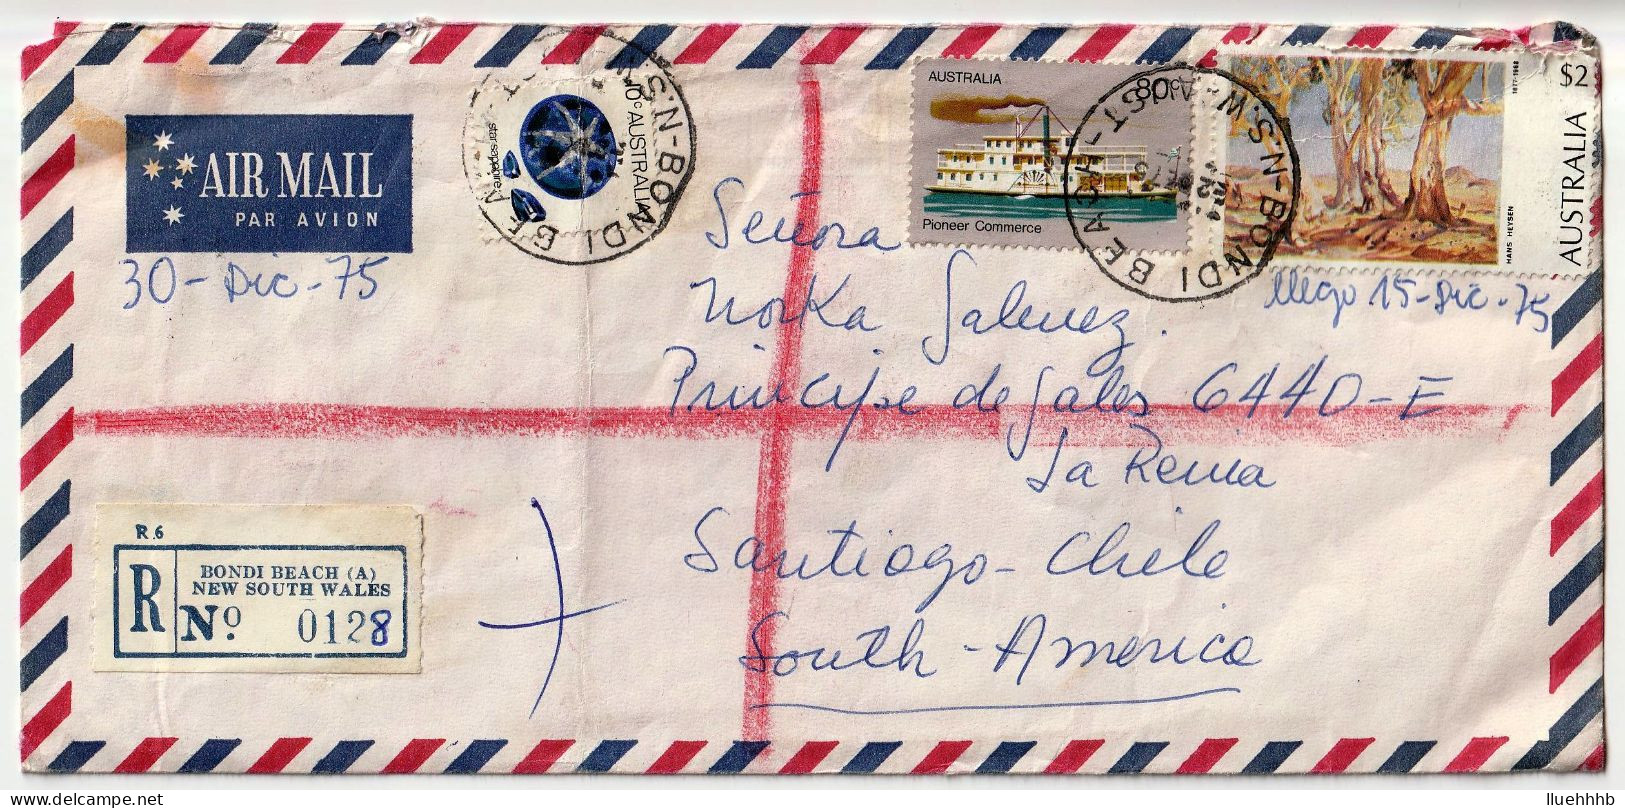 AIR MAIL
PAR AVION
30-Dic-75
10c AUSTRALIA
star sapphire
N-BONDI BEACH
N.S.W
AUSTRALIA
Pioneer Commerce
N-BONDI BEACH
N.S.W. AUST
$2
AUSTRALIA
HANS HEYSEN
1877-1968
llego 15-Dic-75
Señora
Norka Galvez.
Principe de Gales 6440-E
La Reina
Santiago-Chile
South-America
R.6
R
BONDI BEACH (A)
NEW SOUTH WALES
No. 0128
lluehhhb
delcampe.net